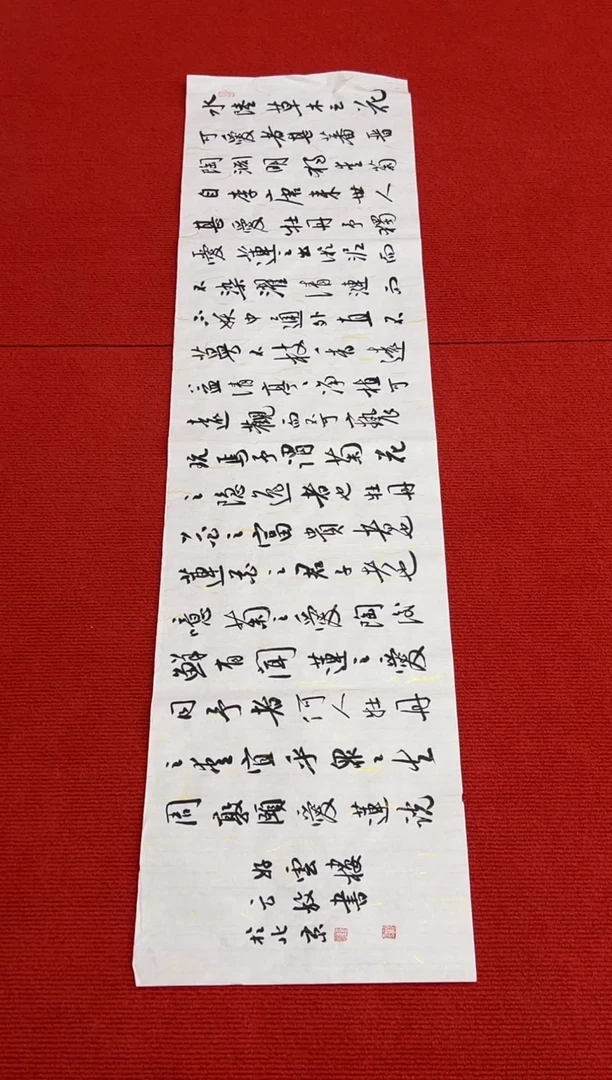 水陸草木之花
可愛者甚蕃晋
陶淵明獨愛菊
自李唐来世人
甚愛牡丹予獨
愛蓮之出淤泥而
不染濯清漣而
不妖中通外直不
蔓不枝香遠
益清亭亭净植可
遠觀而不可褻
玩焉予謂菊花
之隐逸者也牡丹
花之富貴者也
蓮花之君子者也
噫菊之愛陶後
鮮有聞蓮之愛
同予者何人牡丹
之愛宜乎衆
周敦頤愛蓮説
雲樓
書
於北京